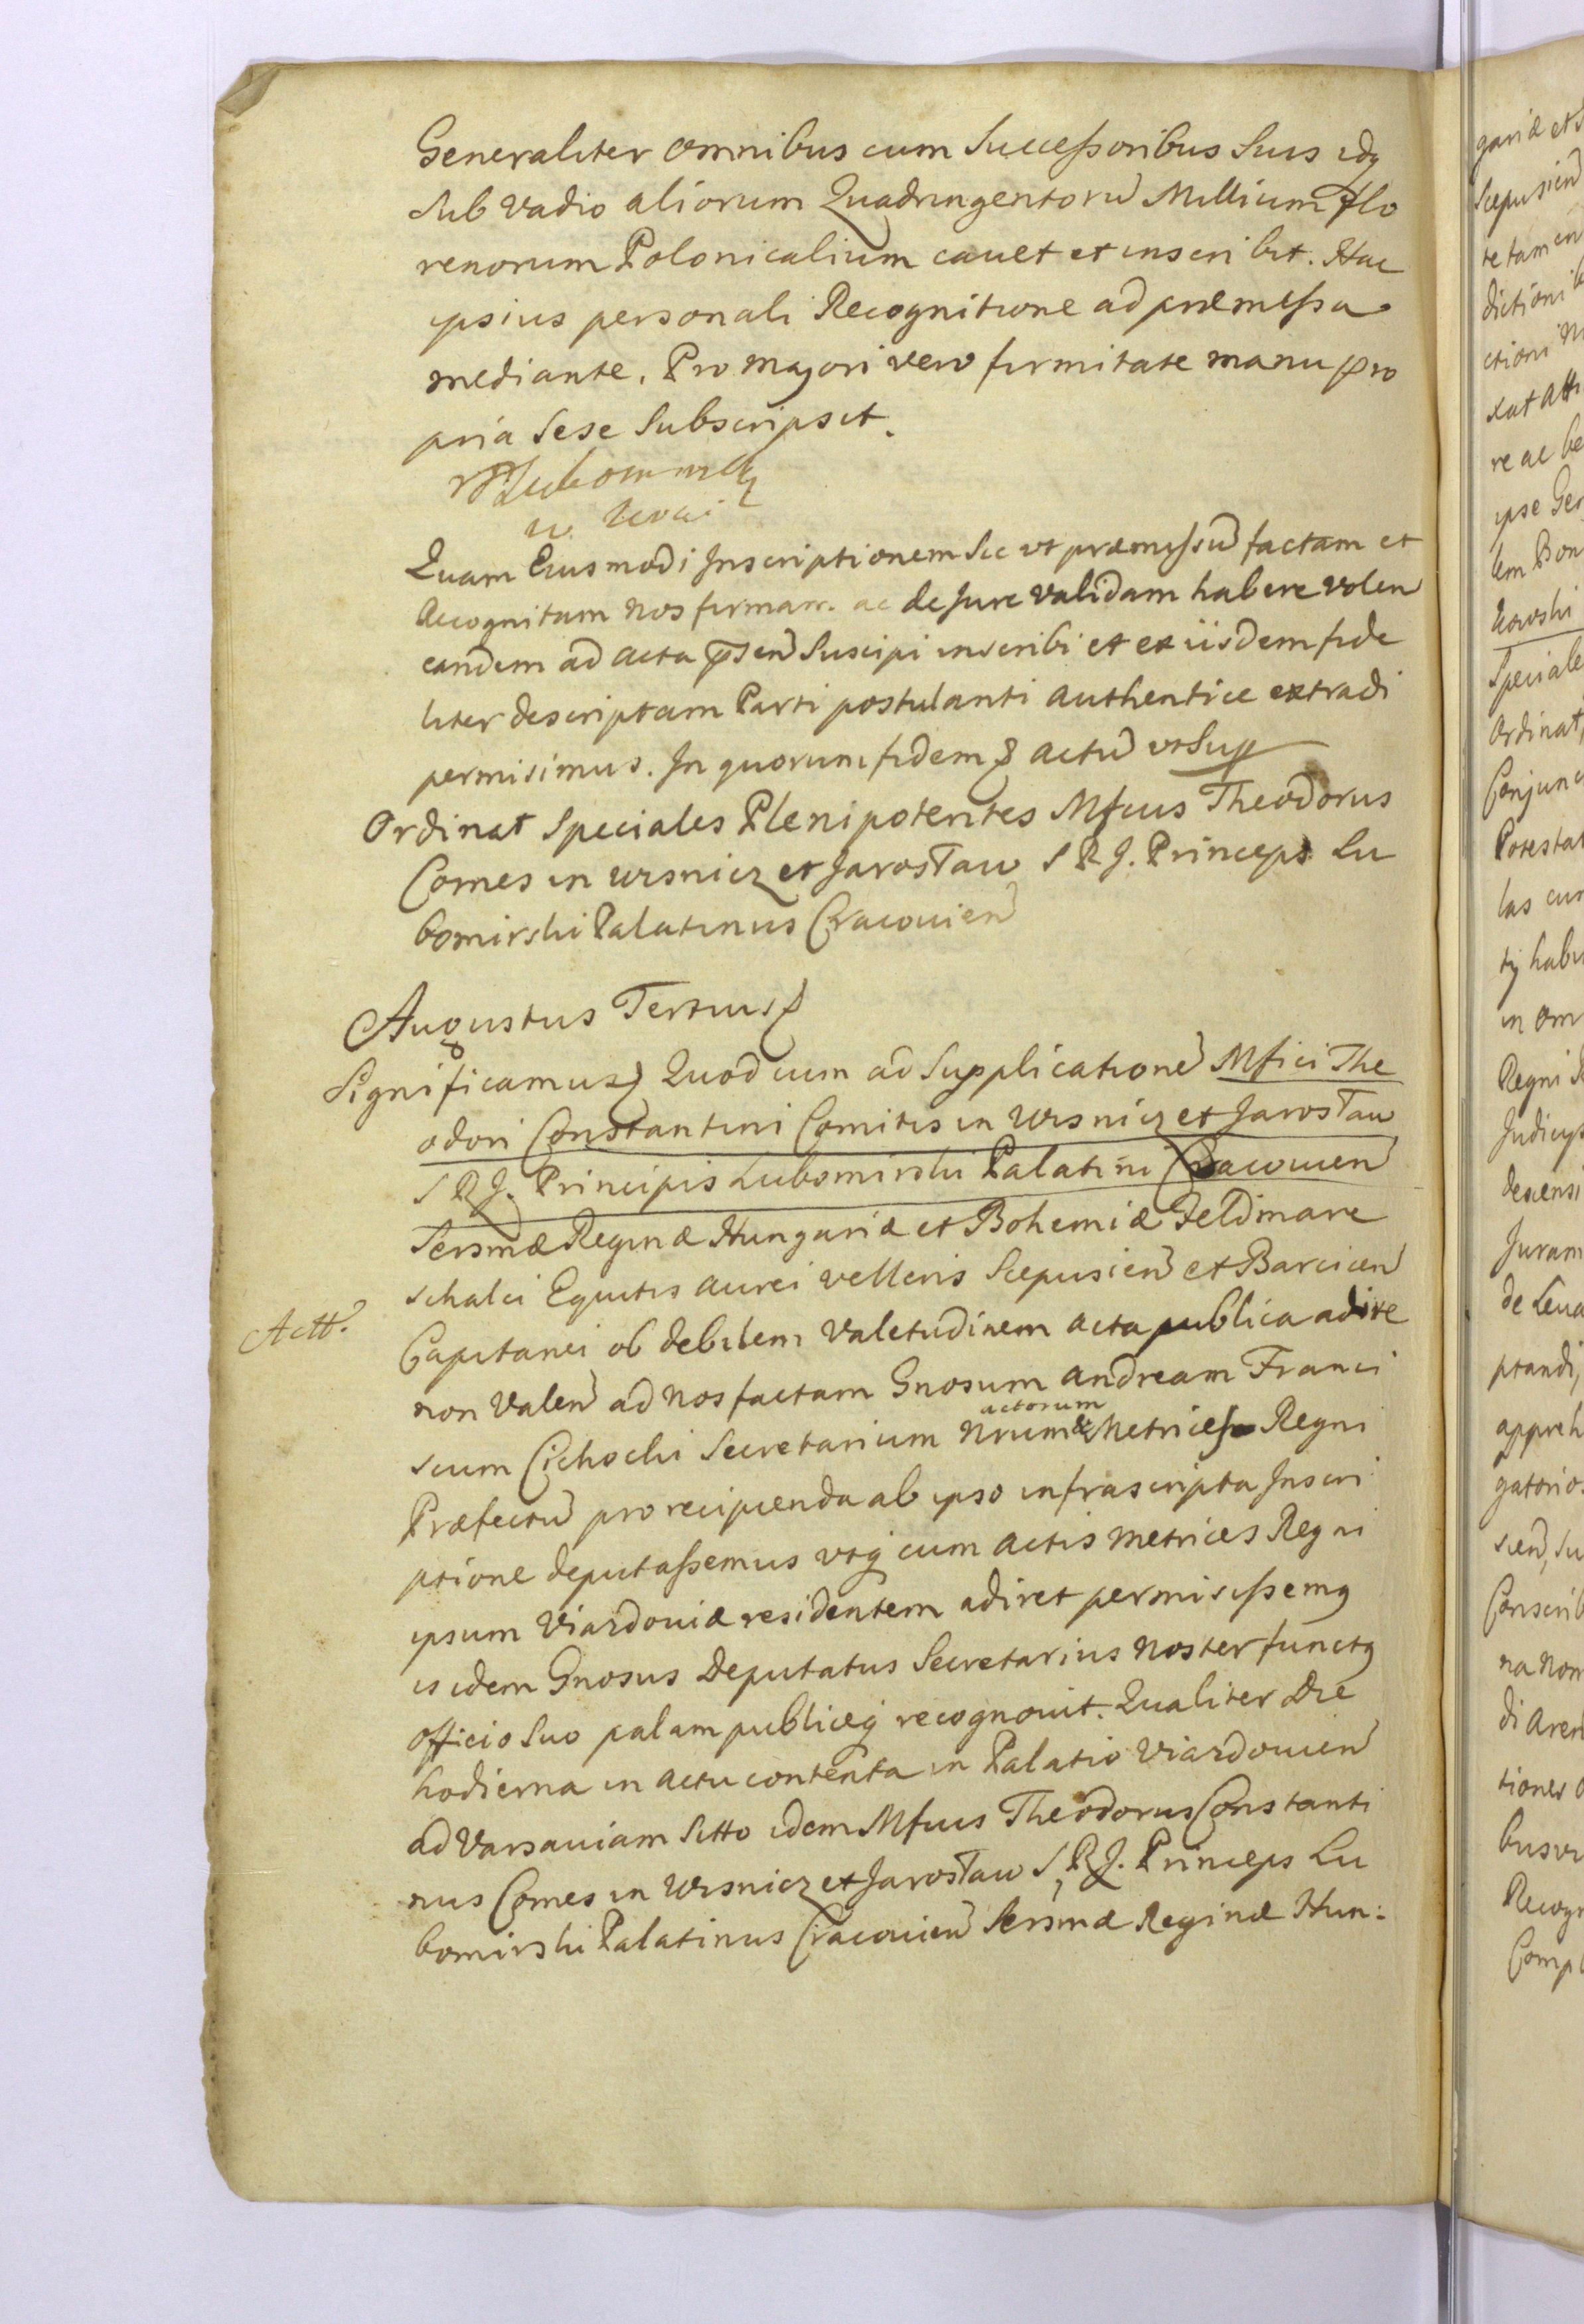 Generaliter omnibus cum Successoribus Suis idq
Sub Vadio aliorum Quadringentorū Millium Flo
renorum Polonicalium cavet et inscribit. Hac
ipsius personali Recognitione ad præmissa
mediante. Pro majori vero firmitate manu pro
pria Sese Subscripsit.
Quam Eiusmodi Inscriptionem Sic vt præmissū factam et
Recognitam Nos firmam ac de Jure Validam habere volen
eandem ad acta pnsen Suscipi inscribi et ex iisdem fide
liter descriptam Parti postulanti authentice extradi
permisimus. In quorum fidem & actū vt Sup
Ordinat Speciales Plenipotentes Mfcus Theodorus
Comes in Wisnicz et Jarosław S R J. Princeps Lu
bomirski Palatinus Cracovien
Augustus Tertius &
Significamus & Quod cum ad Supplicationē Mfici The
odori Constantini Comitis in Wisnicz et Jarosław
S R J. Principis Lubomirski Palatini Cracovien
Sersmæ Reginæ Hungariæ et Bohemiæ Feldmare
schalci Equitis aurei velleris Scepusien et Barcicen
Actt.
Capitanei ob debilem Valetudinem acta publica adire
non Valen ad nos factam Gnosum Andream Franci
actorum
scum Cichocki Secretarium Nrum & Metrices Regni
Præfectū pro recipienda ab ipso infrascripta Inscri
ptione deputassemus vtq cum actis Metrices Regni
ipsum Viazdoviæ residentem adiret permisissemq
is idem Gnosus Deputatus Secretarius Noster functq
officio Suo palam publiceq recognovit. Qualiter Die
hodierna in actu contenta in Palatio Viazdovien
ad Varsaviam Sitto idem Mfcus Theodorus Constanti
nus Comes in Wisnicz et Jarosław S, R J. Princeps Lu
bomirski Palatinus Cracovien Sersmæ Reginæ Hun: